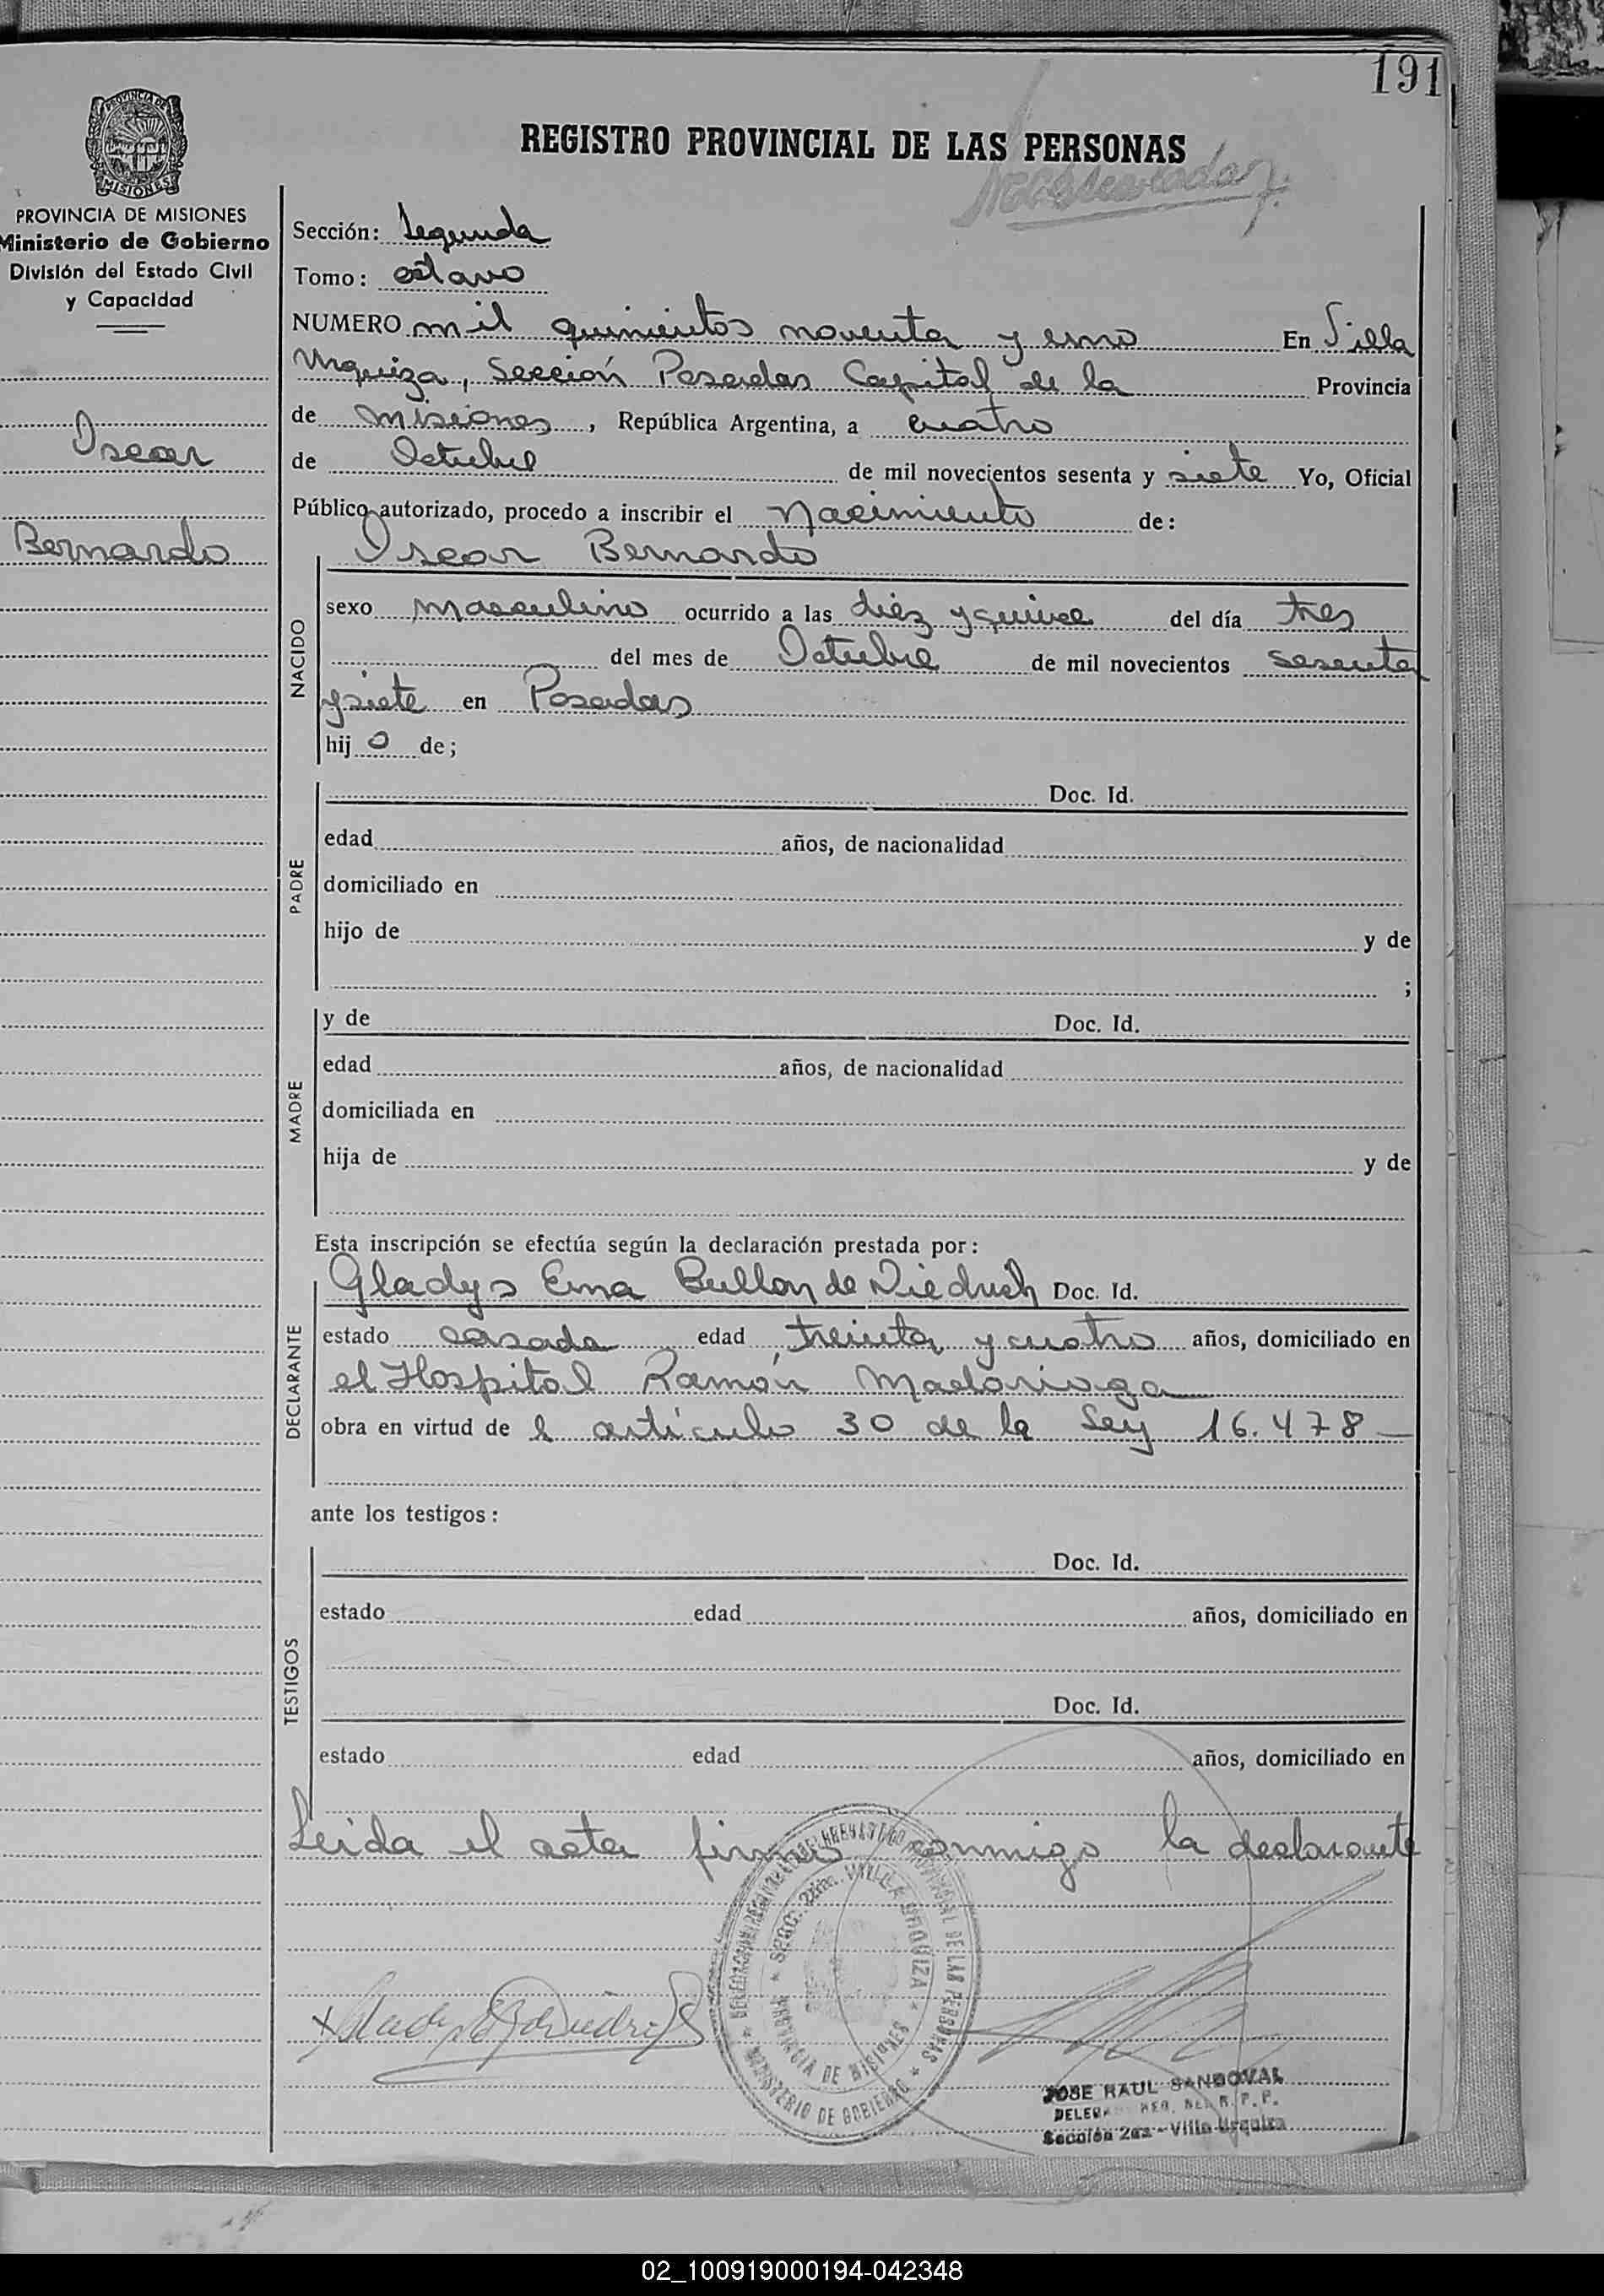 191
PROVINCIA DE
MISIONES
PROVINCIA DE MISIONES
Ministerio de Gobierno
División del Estado Civil
y Capacidad
Oscar
Bernardo
REGISTRO PROVINCIAL DE LAS PERSONAS
Sección: Segunda
Tomo: octavo
NUMERO mil quinientos noventa y uno En Villa
Urquiza, Sección Posadas Capital de la Provincia
de Misiones, República Argentina, a cuatro
de Octubre de mil novecientos sesenta y siete Yo, Oficial
Público autorizado, procedo a inscribir el Nacimiento de:
Oscar Bernardo
NACIDO
sexo masculino ocurrido a las diez y quince del día tres
del mes de Octubre de mil novecientos sesenta
y siete en Posadas
hij o de;
PADRE
Doc. Id.
edad años, de nacionalidad
domiciliado en
hijo de y de
;
MADRE
y de Doc. Id.
edad años, de nacionalidad
domiciliada en
hija de y de
Esta inscripción se efectúa según la declaración prestada por:
DECLARANTE
Gladys Ema Bullon de Niedrich Doc. Id.
estado casada edad treinta y cuatro años, domiciliado en
el Hospital Ramón Madariaga
obra en virtud de l artículo 30 de la Ley 16.478
ante los testigos:
TESTIGOS
Doc. Id.
estado edad años, domiciliado en
Doc. Id.
estado edad años, domiciliado en
Leida el acta firma conmigo la declarante
PROVINCIAL DE LAS PERSONAS
SECC. 2da. VILLA URQUIZA
PROVINCIA DE MISIONES
MINISTERIO DE GOBIERNO
JOSE RAUL SANDOVAL
R. P. P.
Sección 2da - Villa Urquiza
02_100919000194-042348